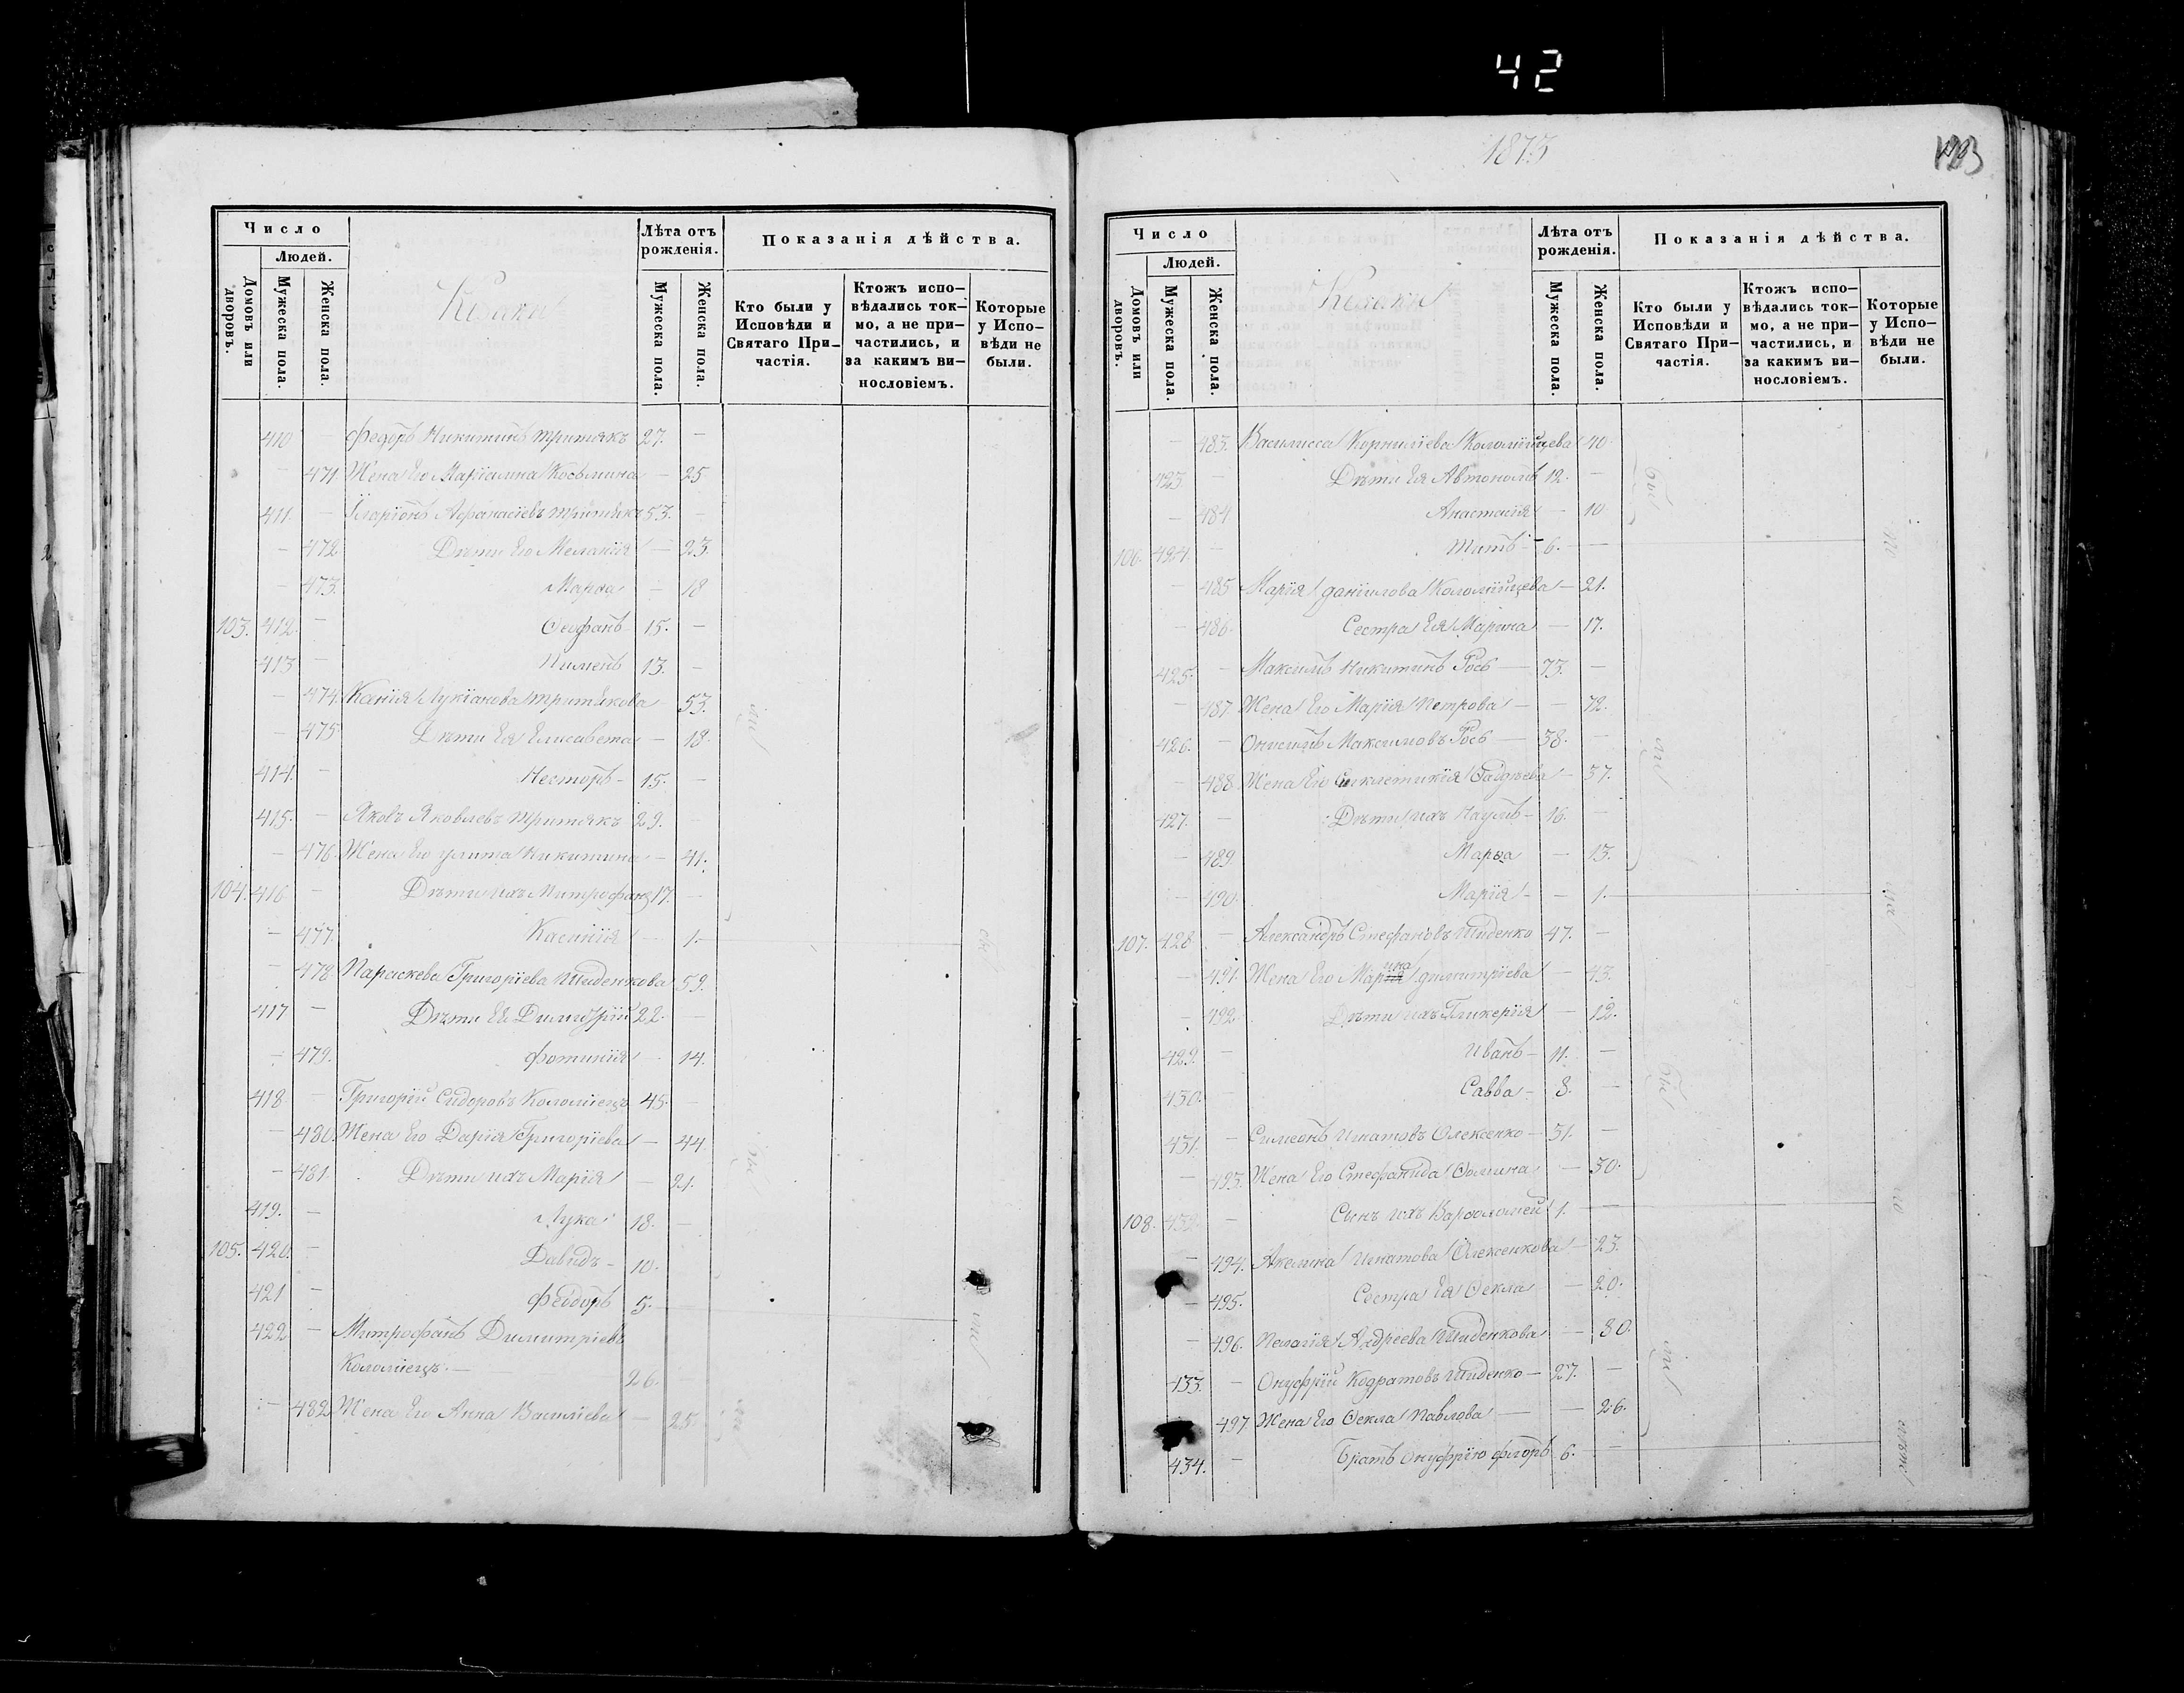 42
Число
Людей.
Домовъ или дворовъ.
Мужеска пола.
Женска пола.
Козаки
Лѣта отъ рожденія.
Мужеска пола.
Женска пола.
Показанія дѣйства.
Кто были у Исповѣди и Святаго При-частія.
Ктожъ испо-вѣдались ток-мо, а не при-частились, и за какимъ ви-нословіемъ.
Которые у Испо-вѣди не были.
410 — Федоръ Никитинъ Притякъ 27. —
— 471. Жена Его Маріамна Косьмина — 25
411. — Іларіонъ Афанасіевъ 53. —
— 472 Дѣти Его Меланія — 23.
— 473. Марѳа — 18
103. 412. — Ѳеофанъ 15. —
413 — Пименъ 13. —
— 474. Ксенія Лукіанова — 53.
— 475 Дѣти Ея Елисавета — 18.
414. — Несторъ 15. —
415. — Яковъ Яковлевъ 29. —
— 476. Жена Его Улита Никитина — 41.
104. 416 — Дѣти ихъ Митрофанъ 17. —
— 477. Ксенія — 1.
— 478. Параскева Григоріева Шиденкова 59.
417 — Дѣти Ея Димитрій 22. —
— 479. Фотинія — 14.
418 — Григорій Сидоровъ Коломіецъ 45. —
— 480. Жена Его Дарія Григоріева — 44.
— 481. Дѣти ихъ Марія — 21.
419. — Лука 18. —
105. 420. — Давидъ 10.
421 — Феодоръ 5.
422 — Митрофанъ Димитріевъ
Коломіецъ. — 26.
— 482. Жена Его Анна Василіева — 25.
1875
Число
Людей.
Домовъ или дворовъ.
Мужеска пола.
Женска пола.
Козаки
Лѣта отъ рожденія.
Мужеска пола.
Женска пола.
Показанія дѣйства.
Кто были у Исповѣди и Святаго При-частія.
Ктожъ испо-вѣдались ток-мо, а не при-частились, и за какимъ ви-нословіемъ.
Которые у Испо-вѣди не были.
— 483. Василисса Корниліева Коломійцева 40.
423. — Дѣти Ея Автономъ 12. —
— 484. Анастасія — 10
106. 424. — Титъ 6. —
— 485 Марія Даниілова Коломійцева — 21.
— 486. Сестра Ея Марина — 17.
425. — Максимъ Никитинъ 73. —
— 487. Жена Его Марія Петрова — 72.
426. — Онисимъ Максимовъ 38. —
— 488. Жена Его Синклетикія Ѳадѣева — 37.
427. — Дѣти ихъ Наумъ 16. —
— 489. Марѳа — 13.
— 490. Марія — 1.
107. 428. — Александръ Стефановъ Шиденко 47. —
— 491. Жена Его Марина Димитріева — 43.
— 492. Дѣти ихъ Гликерія — 12.
429. — Иванъ 11. —
430. — Савва 8. —
431. — Симеонъ Игнатовъ Олексенко 31. —
— 493. Жена Его Стефанида Ѳомина — 30.
108. 432. — Сынъ ихъ Варѳоломей 1. —
— 494. Акелина Игнатова Олексенкова — 23.
— 495. Сестра Ея Ѳекла — 20.
— 496. Пелагія Андреева Шиденкова — 80.
433. — Онуфрій Кодратовъ Шиденко 27. —
497 Жена Его Ѳекла Павлова — 26.
434. — Братъ Онуфрію Флоръ 6. —